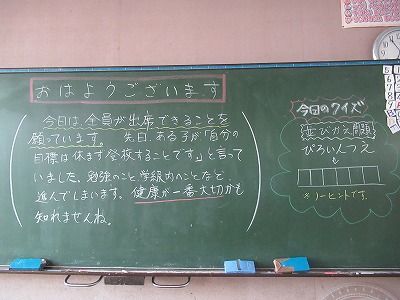 おはようございます
今日は、全員が出席できることを
願っています。 先日、ある子が「自分の
目標は休まず登校することです」と言って
いました。勉強のこと、学級内のことなど、
進んでしまいます。健康が一番大切かも
知れませんね。
今日のクイズ
並びかえ問題
びろいんつえ
※ノーヒントです。